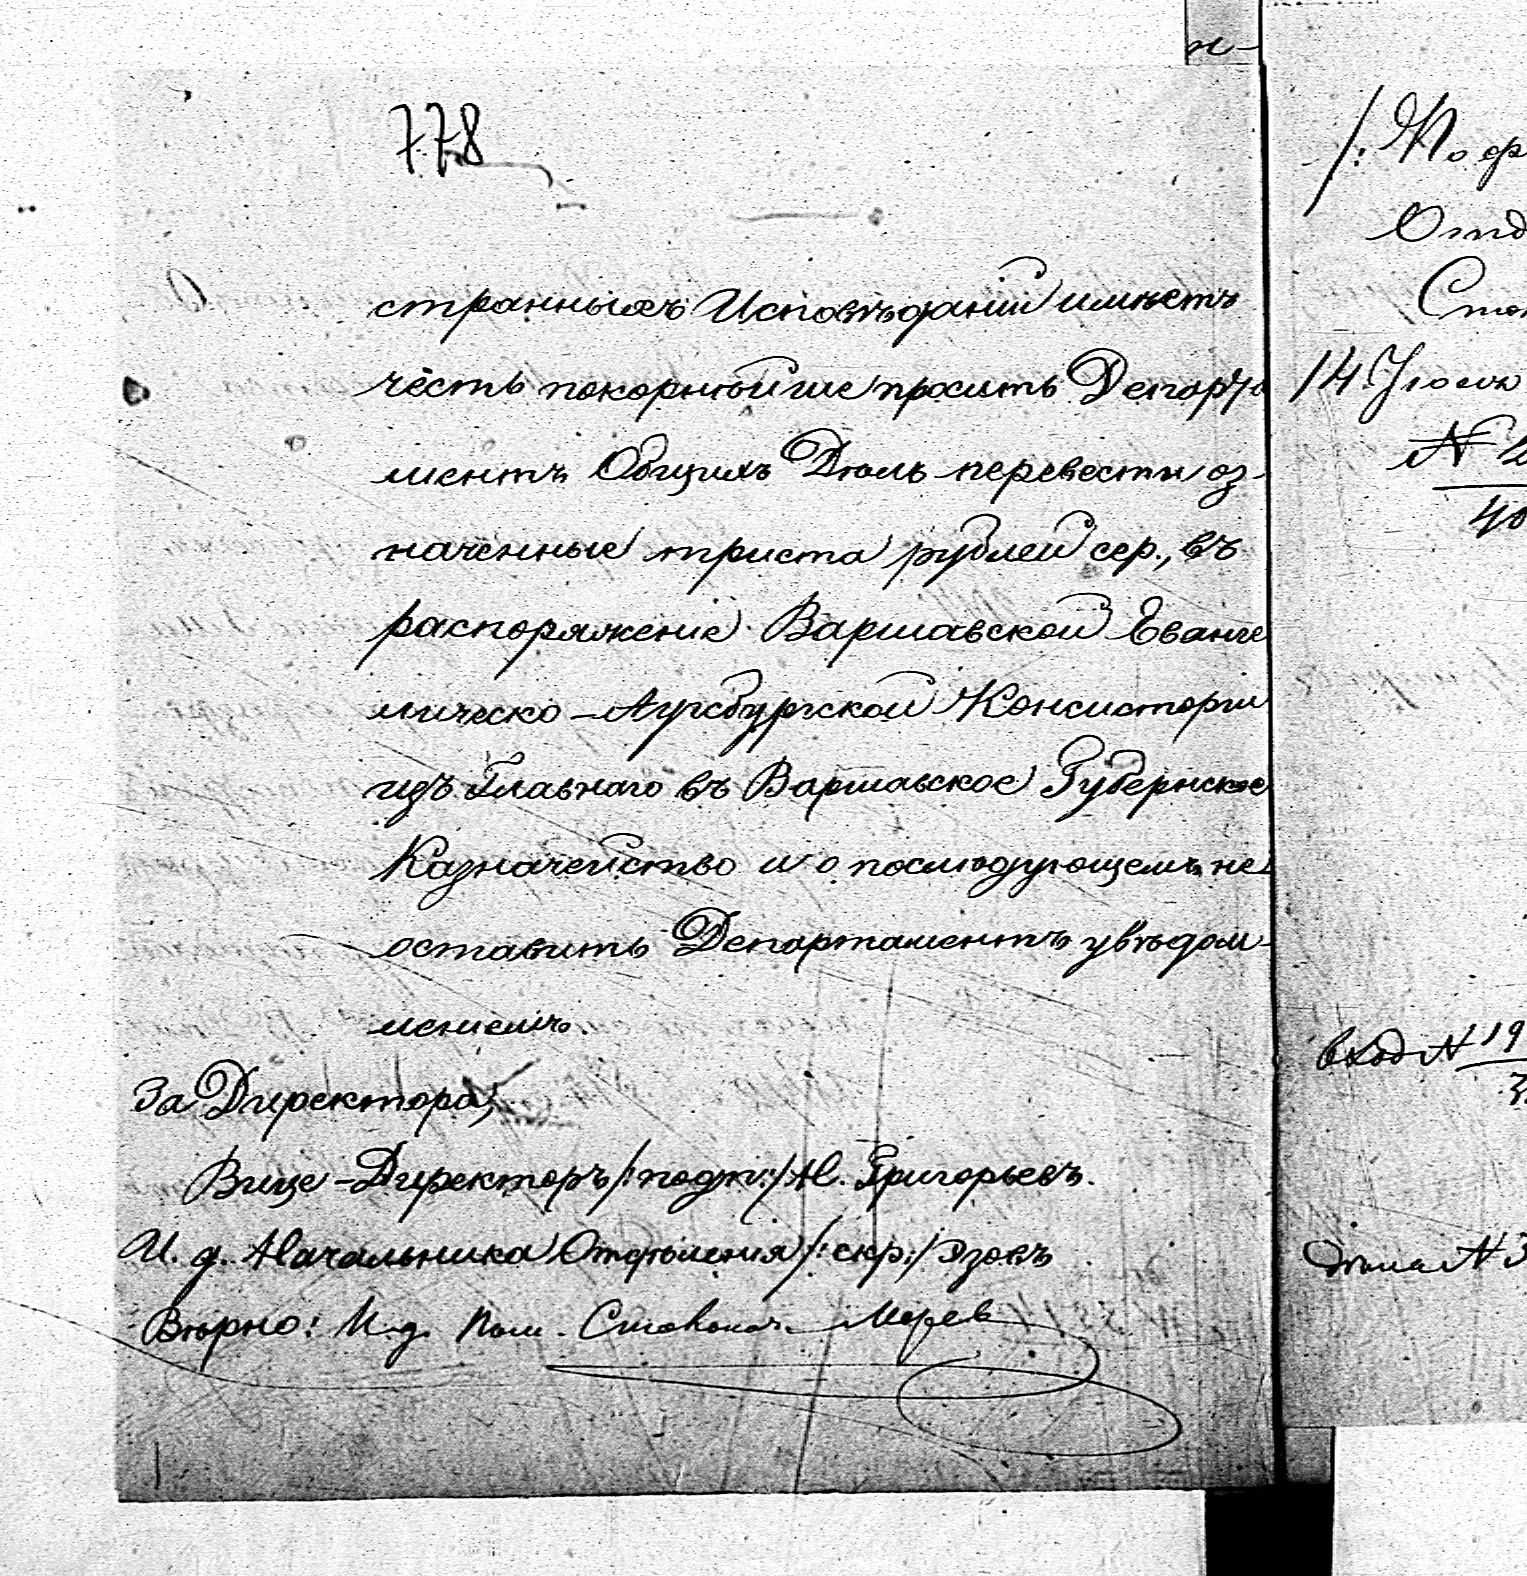 778
странныхъ Исповѣданій имѣетъ
честь покорнѣйше просить Депорта
ментъ Общихъ Дѣлъ перевести оз-
наченные триста рублей сер., въ
распоряженіе Варшавской Еванге
лическо-Аугсбургской Консисторіи
изъ Главнаго въ Варшавское Губернское
Казначейство и о послѣдующемъ не
оставить Департаментъ увѣдом-
леніемъ.
За Директора,
Вице-Директоръ /:подп:/ Н. Григорьевъ.
И. д. Начальника Отдѣленія /:скр:/ Эзовъ
Вѣрно: И. д. Пом. Столонач.
/: По ф
Отд
Сто
14 Іюля
№
40
вход № 19
Дѣла № 3